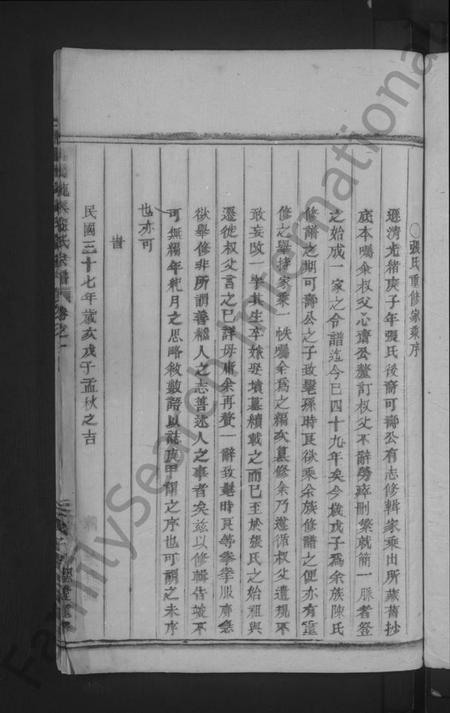 張氏重修家乘序
遜清光緒庚子年張氏後裔可壽公有志修輯家乘出所藏舊抄
底本囑余叔父心齋公釐訂叔父不辭勞瘁刪繁就簡一脈耆登
之始成一家之合譜迄今已四十九年矣今歲戊子爲余族陳氏
修譜之期可壽公之子政髦孫時良欲乘余族修譜之便亦有重
修之舉捧家乘一帙囑余爲之編次纂修余乃遵循叔父遺規不
敢妄改一字其生卒娶墳墓續載之而已至於張氏之始祖與
遷徙叔父言之已詳毋庸余再贅一辭政髦時良等拳拳服膺急
欲舉修非所謂善繼人之志善述人之事者矣茲以修輯告竣不
可無編年紀月之思略敘數語以誌庚甲謂之序也可謂之未序
也亦可
旹
民國三十七年歲次戊子孟秋之吉
FamilySearch International